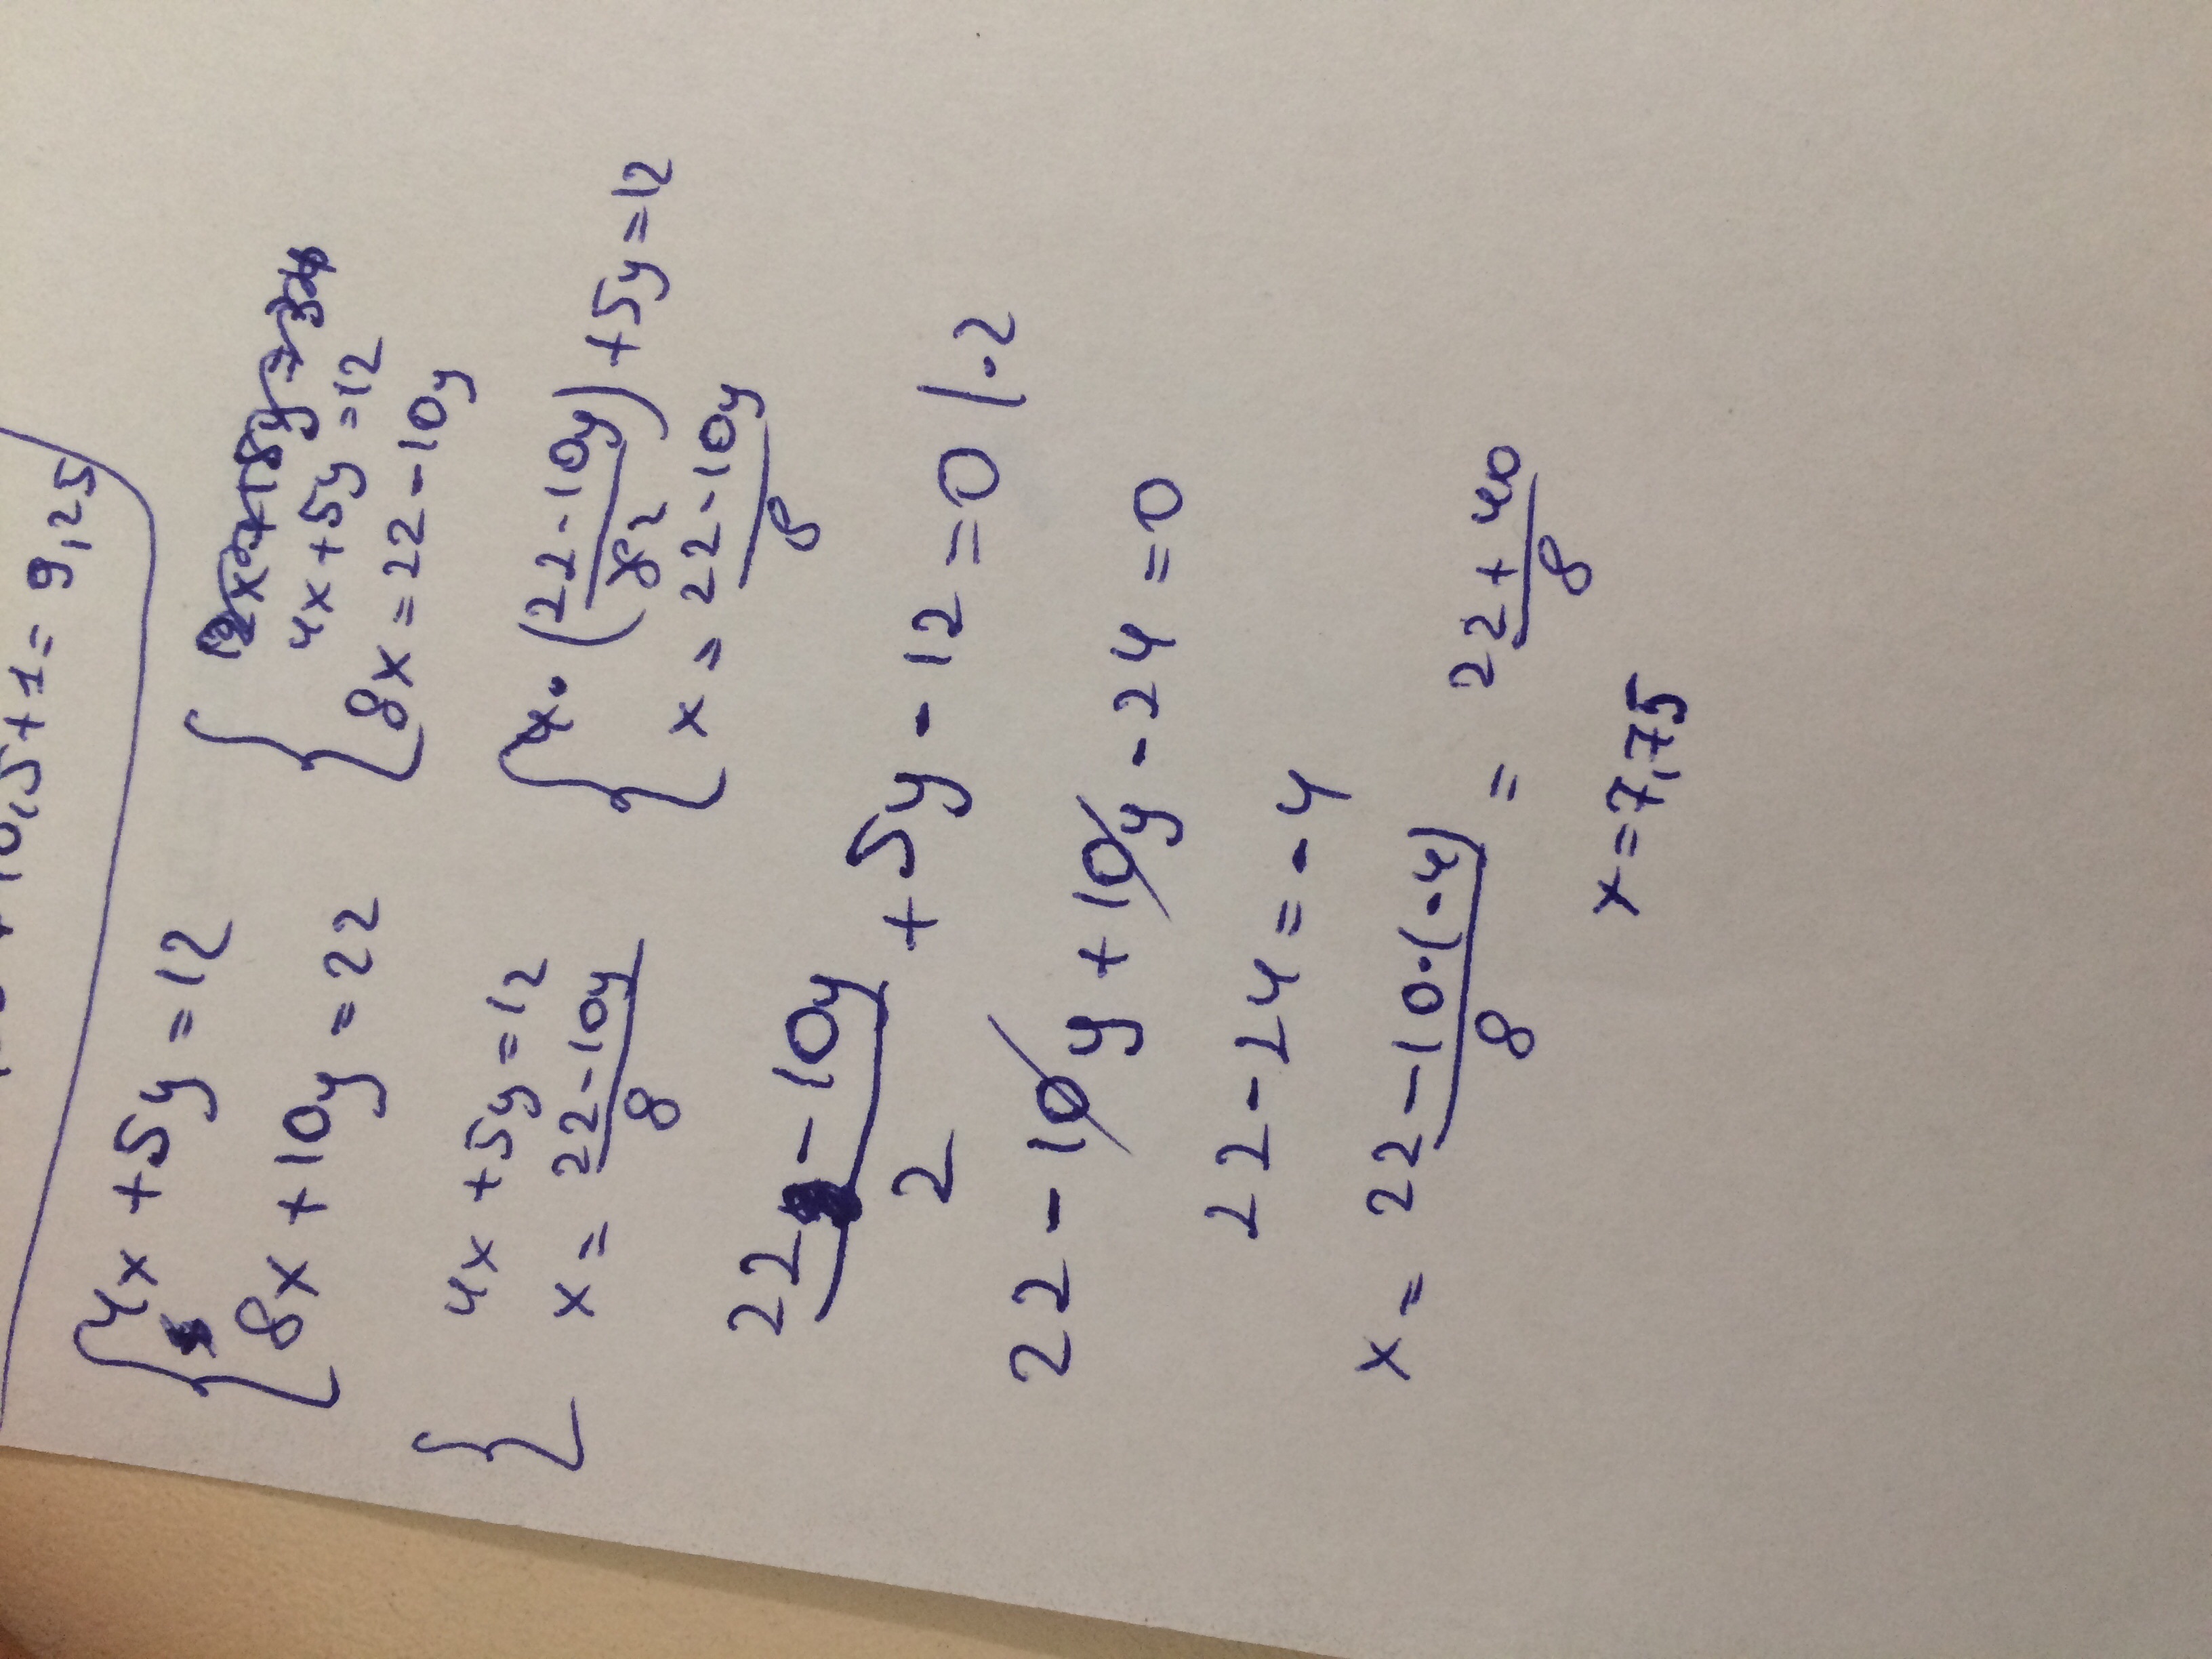 10,5+1=9,25
{4x+5y=12
8x+10y=22
{4x+5y=12
8x=22-10y
{4x+5y=12
x=22-10y/8
{4·(22-10y/8 2)+5y=12
x=22-10y/8
22-10y/2+5y-12=0/·2
22-10y+10y-24=0
22-24=-4
x=22-10·(-4)/8=22+40/8
x=7,75